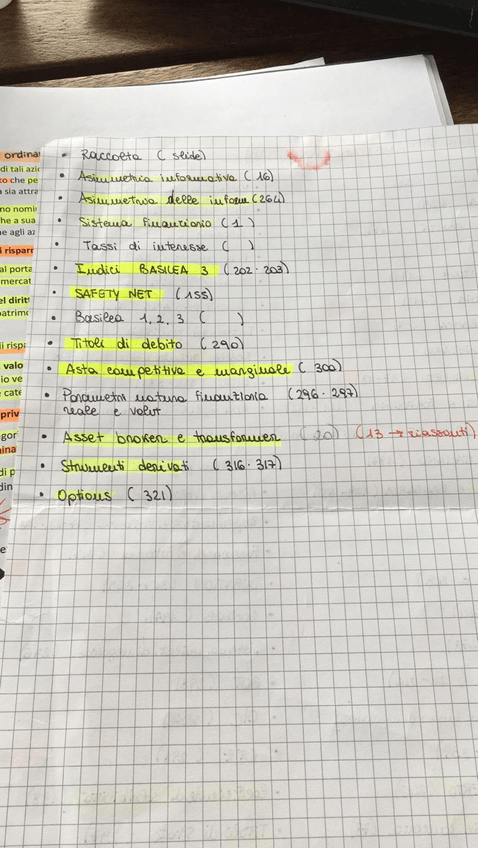 ordina
di tali azio
to che pe
sia attra
no nomi
he a sua
e agli az
i risparm
al porta
mercat
el diritt
patrimo
ii rispa
valo
io ve
cate
priv
gor
nina
di p
din
e
• Raccolta ( slide)
• Asimmetria informativa ( 16)
• Asimmetria delle inform (264)
• Sistema finanziario ( 1 )
• Tassi di interesse ( )
• Indici BASILEA 3 (202-203)
• SAFETY NET (155)
• Basilea 1, 2, 3 ( )
• Titoli di debito (290)
• Asta competitiva e marginale ( 300)
• Parametri natura finanziaria (296-297)
reale e valut
• Asset broker e transformer (20) (13 → riassunti)
• Strumenti derivati (316-317)
• Options ( 321)